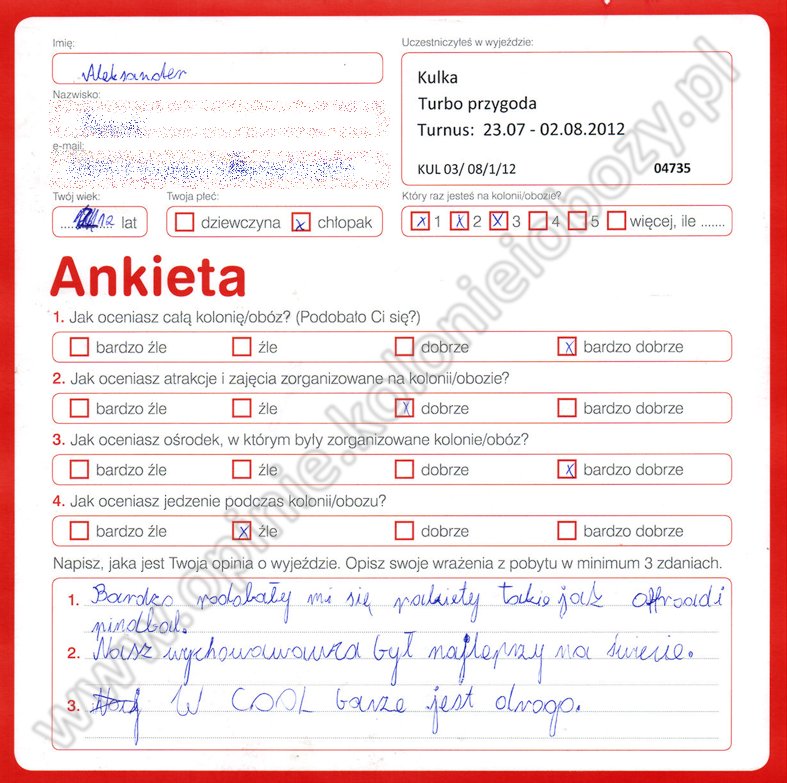 Imię:
Aleksander
Uczestniczyłeś w wyjeździe:
Kulka
Turbo przygoda
Turnus: 23.07 - 02.08.2012
KUL 03/ 08/1/12 04735
Nazwisko:
e-mail:
Twój wiek:
12 lat
Twoja płeć:
dziewczyna x chłopak
Który raz jesteś na kolonii/obozie?
x 1 x 2 x 3 4 5 więcej, ile .......
Ankieta
1. Jak oceniasz całą kolonię/obóz? (Podobało Ci się?)
bardzo źle źle dobrze x bardzo dobrze
2. Jak oceniasz atrakcje i zajęcia zorganizowane na kolonii/obozie?
bardzo źle źle x dobrze bardzo dobrze
3. Jak oceniasz ośrodek, w którym były zorganizowane kolonie/obóz?
bardzo źle źle dobrze x bardzo dobrze
4. Jak oceniasz jedzenie podczas kolonii/obozu?
bardzo źle x źle dobrze bardzo dobrze
Napisz, jaka jest Twoja opinia o wyjeździe. Opisz swoje wrażenia z pobytu w minimum 3 zdaniach.
1. Bardzo podobały mi się pakiety takie jak offroad i
2. Nasz był najlepszy na świecie.
3. W COOL barze jest drogo.
www.opinie.kolonieiobozy.pl